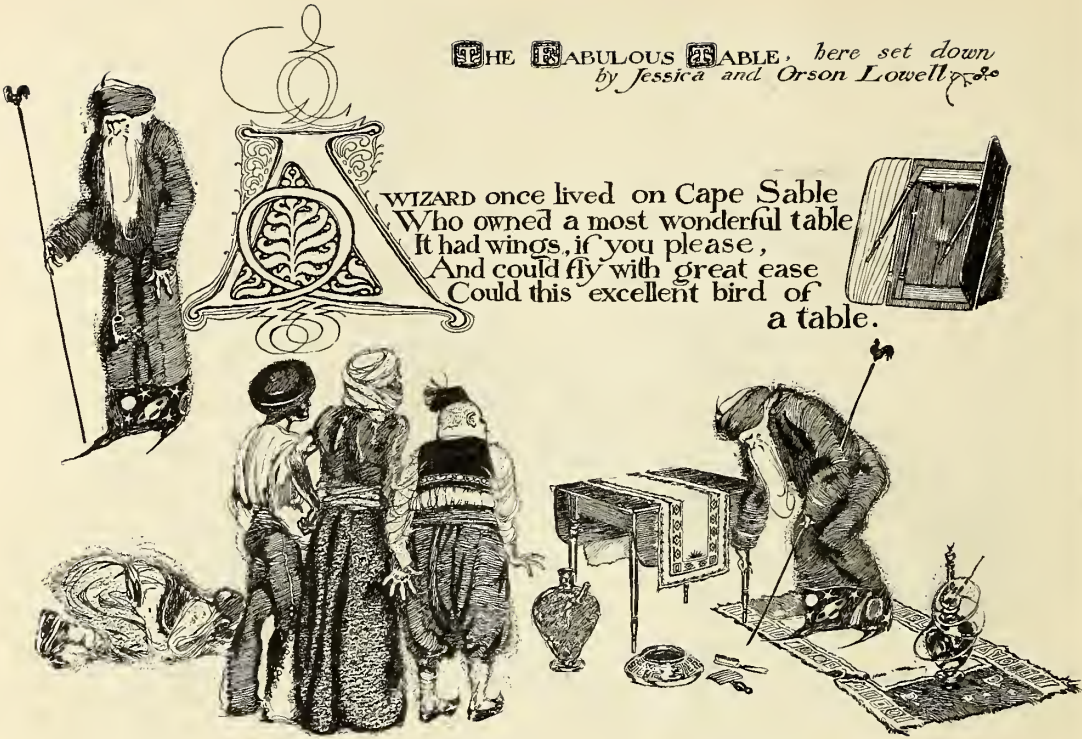 THE FABULOUS TABLE, here set down
by Jessica and Orson Lowell
A WIZARD once lived on Cape Sable
Who owned a most wonderful table
It had wings, if you please,
And could fly with great ease
Could this excellent bird of
a table.